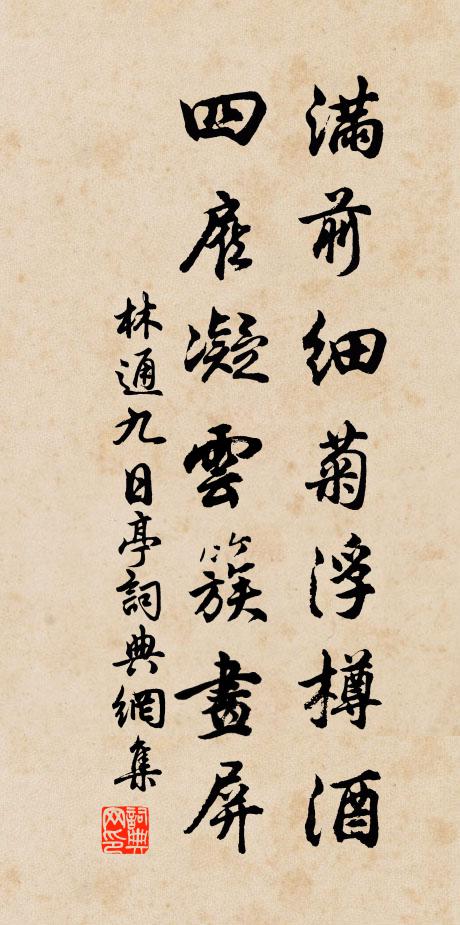 滿前細菊浮樽酒
四扆凝雲簇畫屏
林通九日亭詞典網集
詞典网印